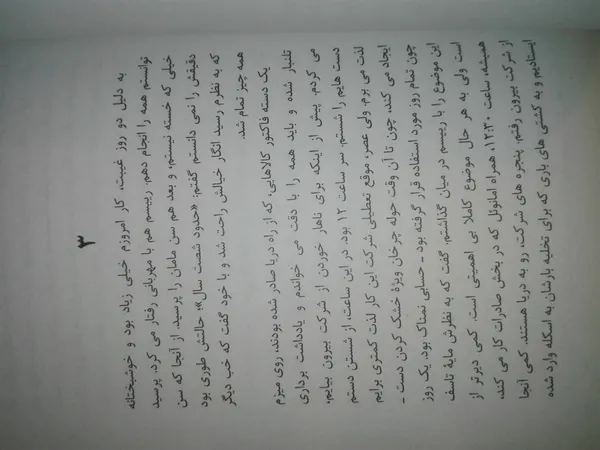 ۳
به دلیل دو روز غیبت، کار امروزم خیلی زیاد بود و خوشبختانه
توانستم همه را انجام دهم. رییسم هم با مهربانی رفتار می کرد. پرسید
خیلی که خسته نیستم، و بعد هم سن مامان را پرسید. از آنجا که سن
دقیقش را نمی دانستم گفتم: «حدود شصت سال»؛ حالتش طوری بود
که به نظرم رسید انگار خیالش راحت شد و با خود گفت که خب دیگر
همه چیز تمام شد.
یک دسته فاکتور کالاهایی، که از راه دریا صادر شده بودند، روی میزم
تلنبار شده و باید همه را با دقت می خواندم و یادداشت برداری
می کردم. پیش از اینکه برای ناهار خوردن از شرکت بیرون بیایم،
دست هایم را شستم. سر ساعت ۱۲ بود. در این ساعت، از شستن دستم
لذت می برم. ولی عصر، موقع تعطیلی شرکت این کار لذت کمتری برایم
ایجاد می کند، چون تا آن وقت حوله چرخان ویژهٔ خشک کردن دست -
چون تمام روز مورد استفاده قرار گرفته بود - حسابی نمناک بود. یک روز
این موضوع را با رییسم در میان گذاشتم. گفت که به نظرش مایهٔ تاسف
است ولی به هر حال موضوع کاملا بی اهمیتی است. کمی دیرتر از
همیشه، ساعت ۱۲:۳۰، همراه امانوئل که در بخش صادرات کار می کند،
از شرکت بیرون رفتم. پنجره های شرکت، رو به دریا هستند. کمی آنجا
ایستادیم و به کشتی های باری که برای تخلیه بارشان به اسکله وارد شده